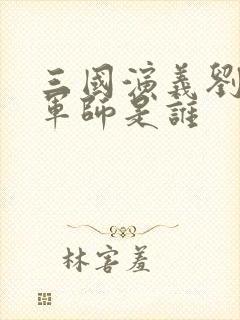 三國演義劉
軍師是誰
林害羞